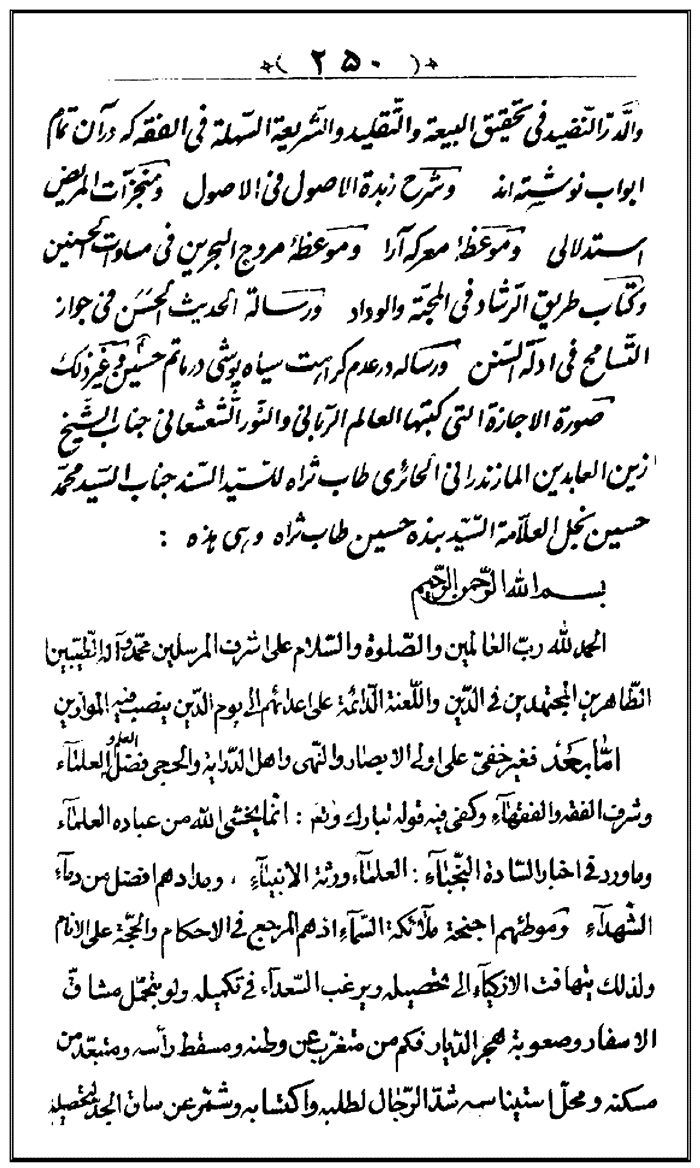 ﴿ ٢٥٠ ﴾
والدّر النّضيد فى تحقيق البيعة والتّقليد والشريعة السّهلة فى الفقه كه درآن تمام
ابواب نوشته اند وشرح زبدة الاصول فى الاصول ومنجزّات المريض
استدلالى وموعظهٔ معركه آرا وموعظهٔ مروج البحرين فى مساوات الحسنين
وكتاب طريق الرّشاد فى المحبّة والوداد ورسالة الحديث الحَسَن فى جواز
التّسامح فى ادلّة السّنن ورساله در عدم كراهت سياه پوشى در ماتم حسينؑ ومن غير ذلك
صورة الاجازة التى كتبها العالم الرّبانى والنّور الشّعشعانى جناب الشّيخ
زين العابدين المازندرانى الحائرى طاب ثراه للسّيّد السّند جناب السّيد محمّد
حسين نجل العلّامة السّيّد بنده حسين طاب ثراه وهى هذه :
بسم الله الرّحمن الرّحيم
الحمد لله ربّ العالمين والصّلوة والسّلام على اشرف المرسلين محمّد وآله الطّيّبين
الطّاهرين المجتهدين فى الدّين واللّعنة الدّائمة على اعدائهم الى يوم الدّين ينصب فيه الموازين
امّا بعد فغير خفىّ على اولى الابصار والنّهى واهل الدّراية والحجى فضل العلم والعلمآء
وشرف الفقه والفقهآء وكفى فيه قوله تبارك وتع : انما يخشى الله من عباده العلمآء
وماورد فى اخبار السّادة النّجبآء : العلمآء ورثة الانبيآء ، ومدادهم افضل من دمآء
الشّهدآء وموطئهم اجنحة ملآئكة السّمآء اذهم المرجع فى الاحكام والحجّة على الانام
ولذلك يتهافت الازكيآء الى تحصيله ويرغب السّعدآء فى تكميله ولو بتحمّل مشاقّ
الاسفار وصعوبة هجر الدّيار فكم من متغرّب عن وطنه ومسقط رأسه ومتبعّد من
مسكنه ومحلّ استيناسه شدّ الرّحال لطلبه واكتسابه وشمّر عن ساق الجدّ لتحصيله